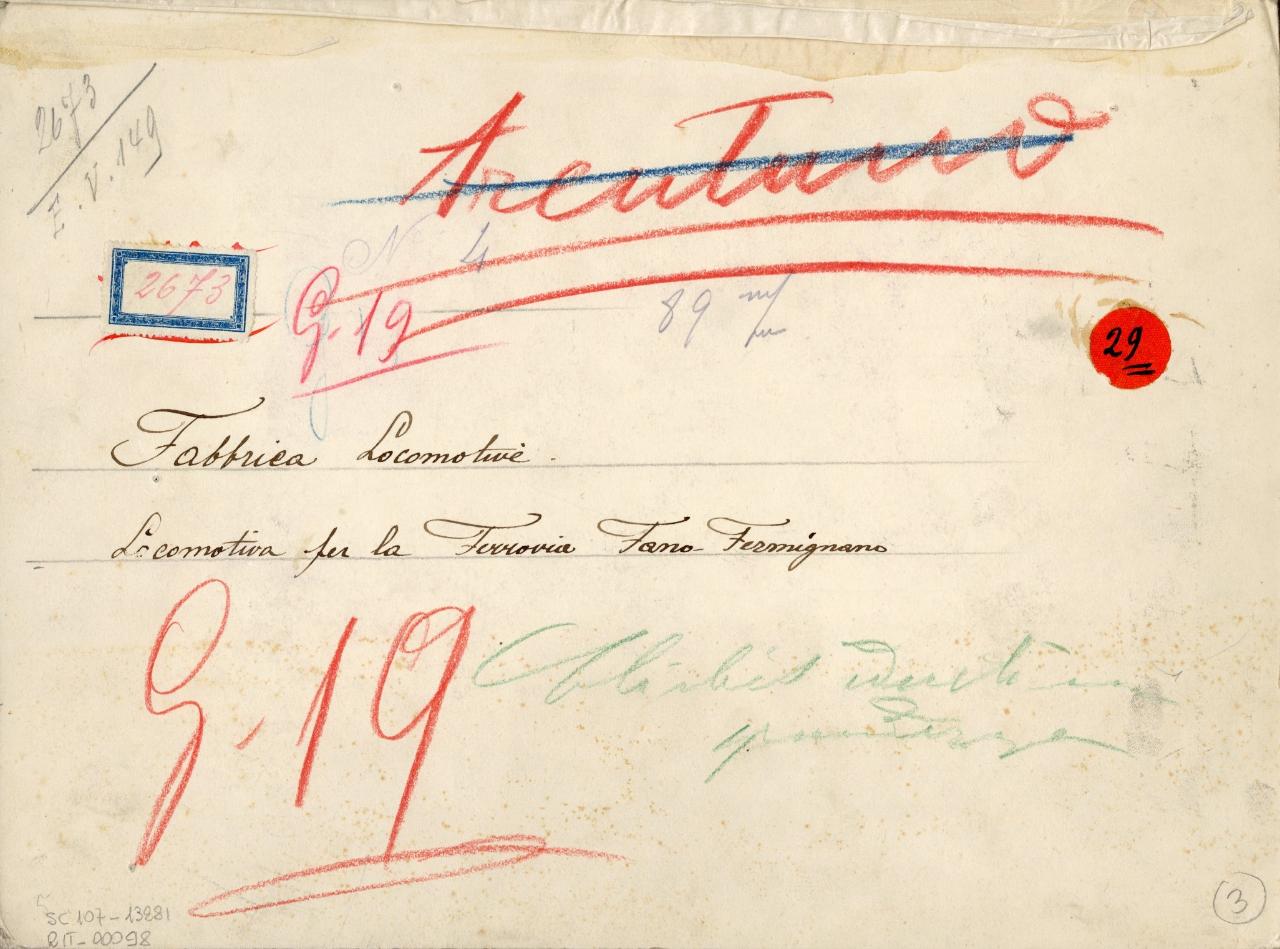 2673
E.V. 149
N 4
2673
G. 19
89 m/m
29
Fabbrica Locomotive.
Locomotiva per la Ferrovia Fano-Fermignano
G. 19
SC 107-13281
RIT-00098
3